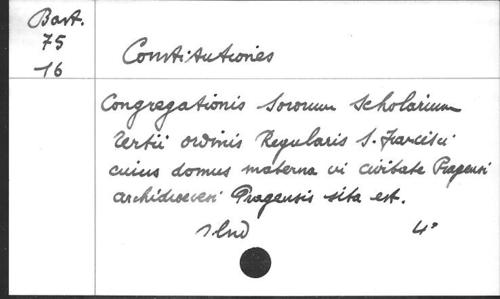 Bart.
75
16
Constitutiones
Congregationis Sororum Scholarium
Tertii ordinis Regularis S. Francisci
cuius domus materna in civitate Pragensi
archidioecesi Pragensis sita est.
4°